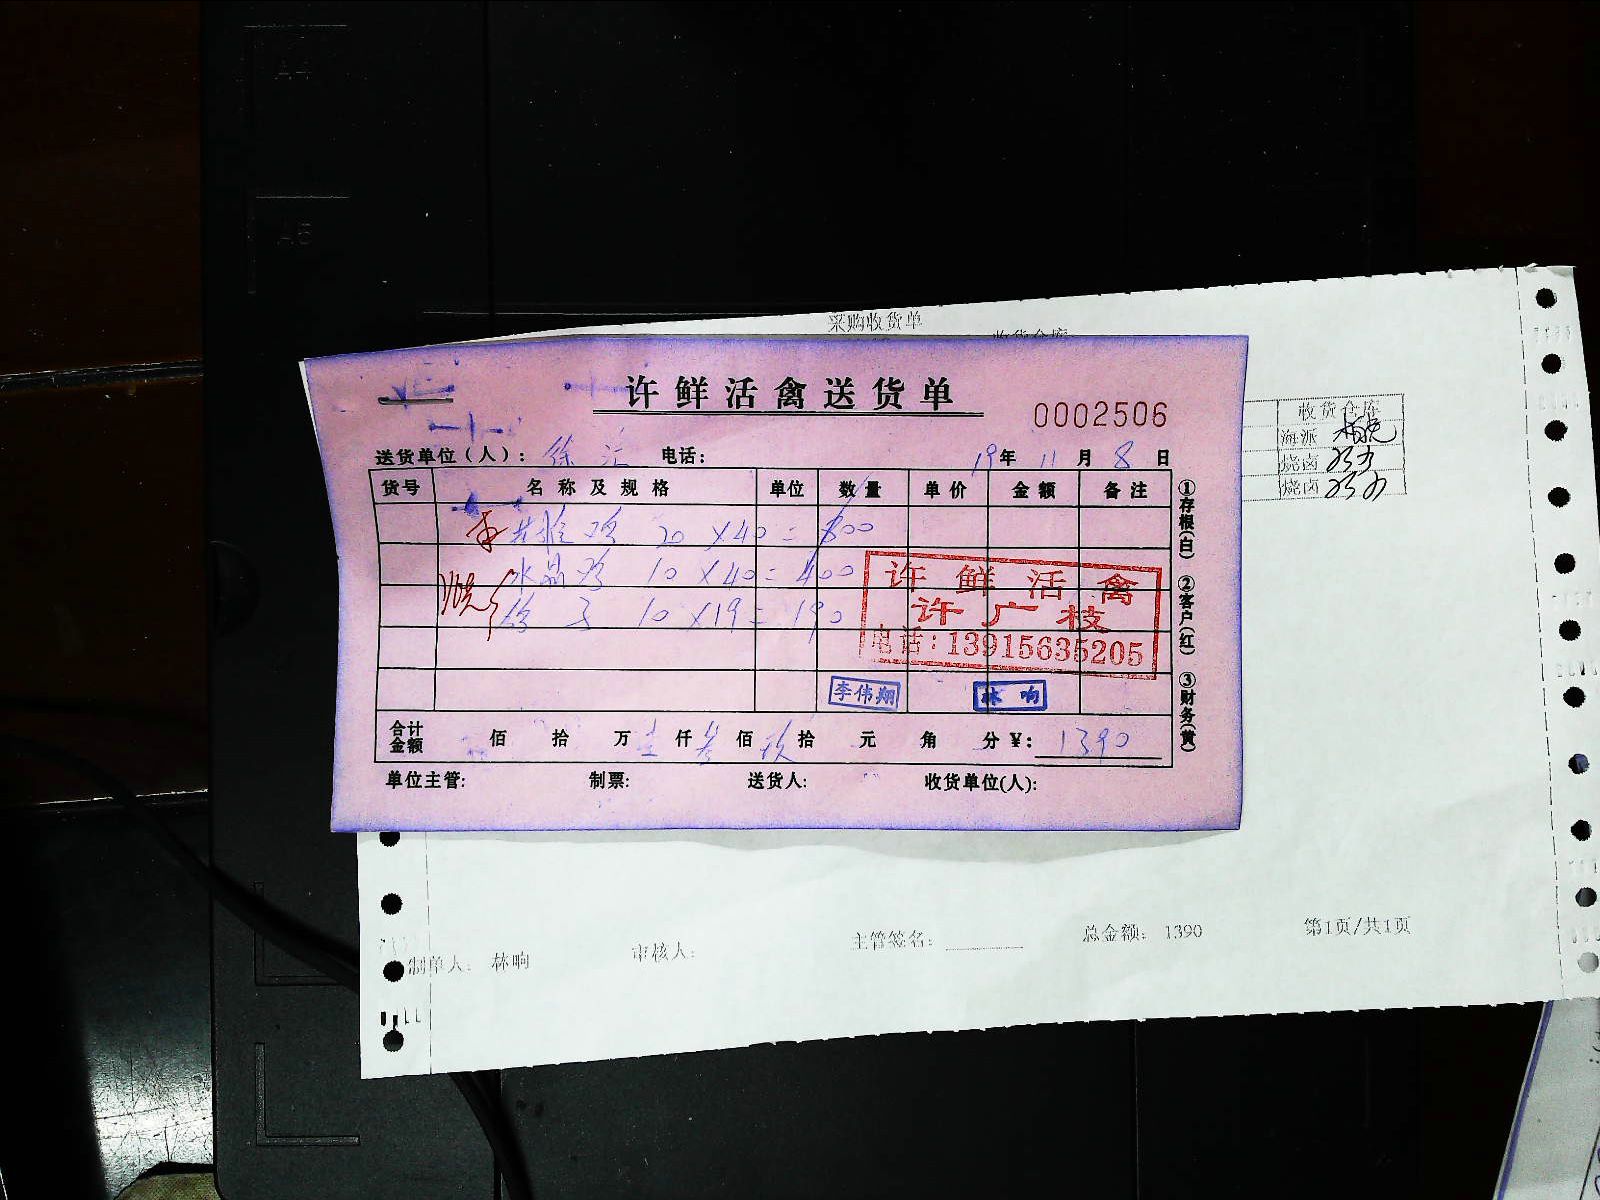 A4
A5
采购收货单
收货仓库
收货仓库
海派
烧卤
烧卤
许鲜活禽送货单
0002506
送货单位（人）：徐汇 电话：
19年11月8日
货号 名称及规格 单位 数量 单价 金额 备注
鸡 20×40=800
水晶鸡 10×40=400
10×19=190
许鲜活禽
许广枝
电话：13915635205
李伟翔 林响
合计金额 佰 拾 万 壹仟 叁佰 玖拾 元 角 分 ¥：1390
单位主管: 制票: 送货人: 收货单位(人):
①存根(白) ②客户(红) ③财务(黄)
制单人：林响 审核人: 主管签名: 总金额: 1390 第1页/共1页